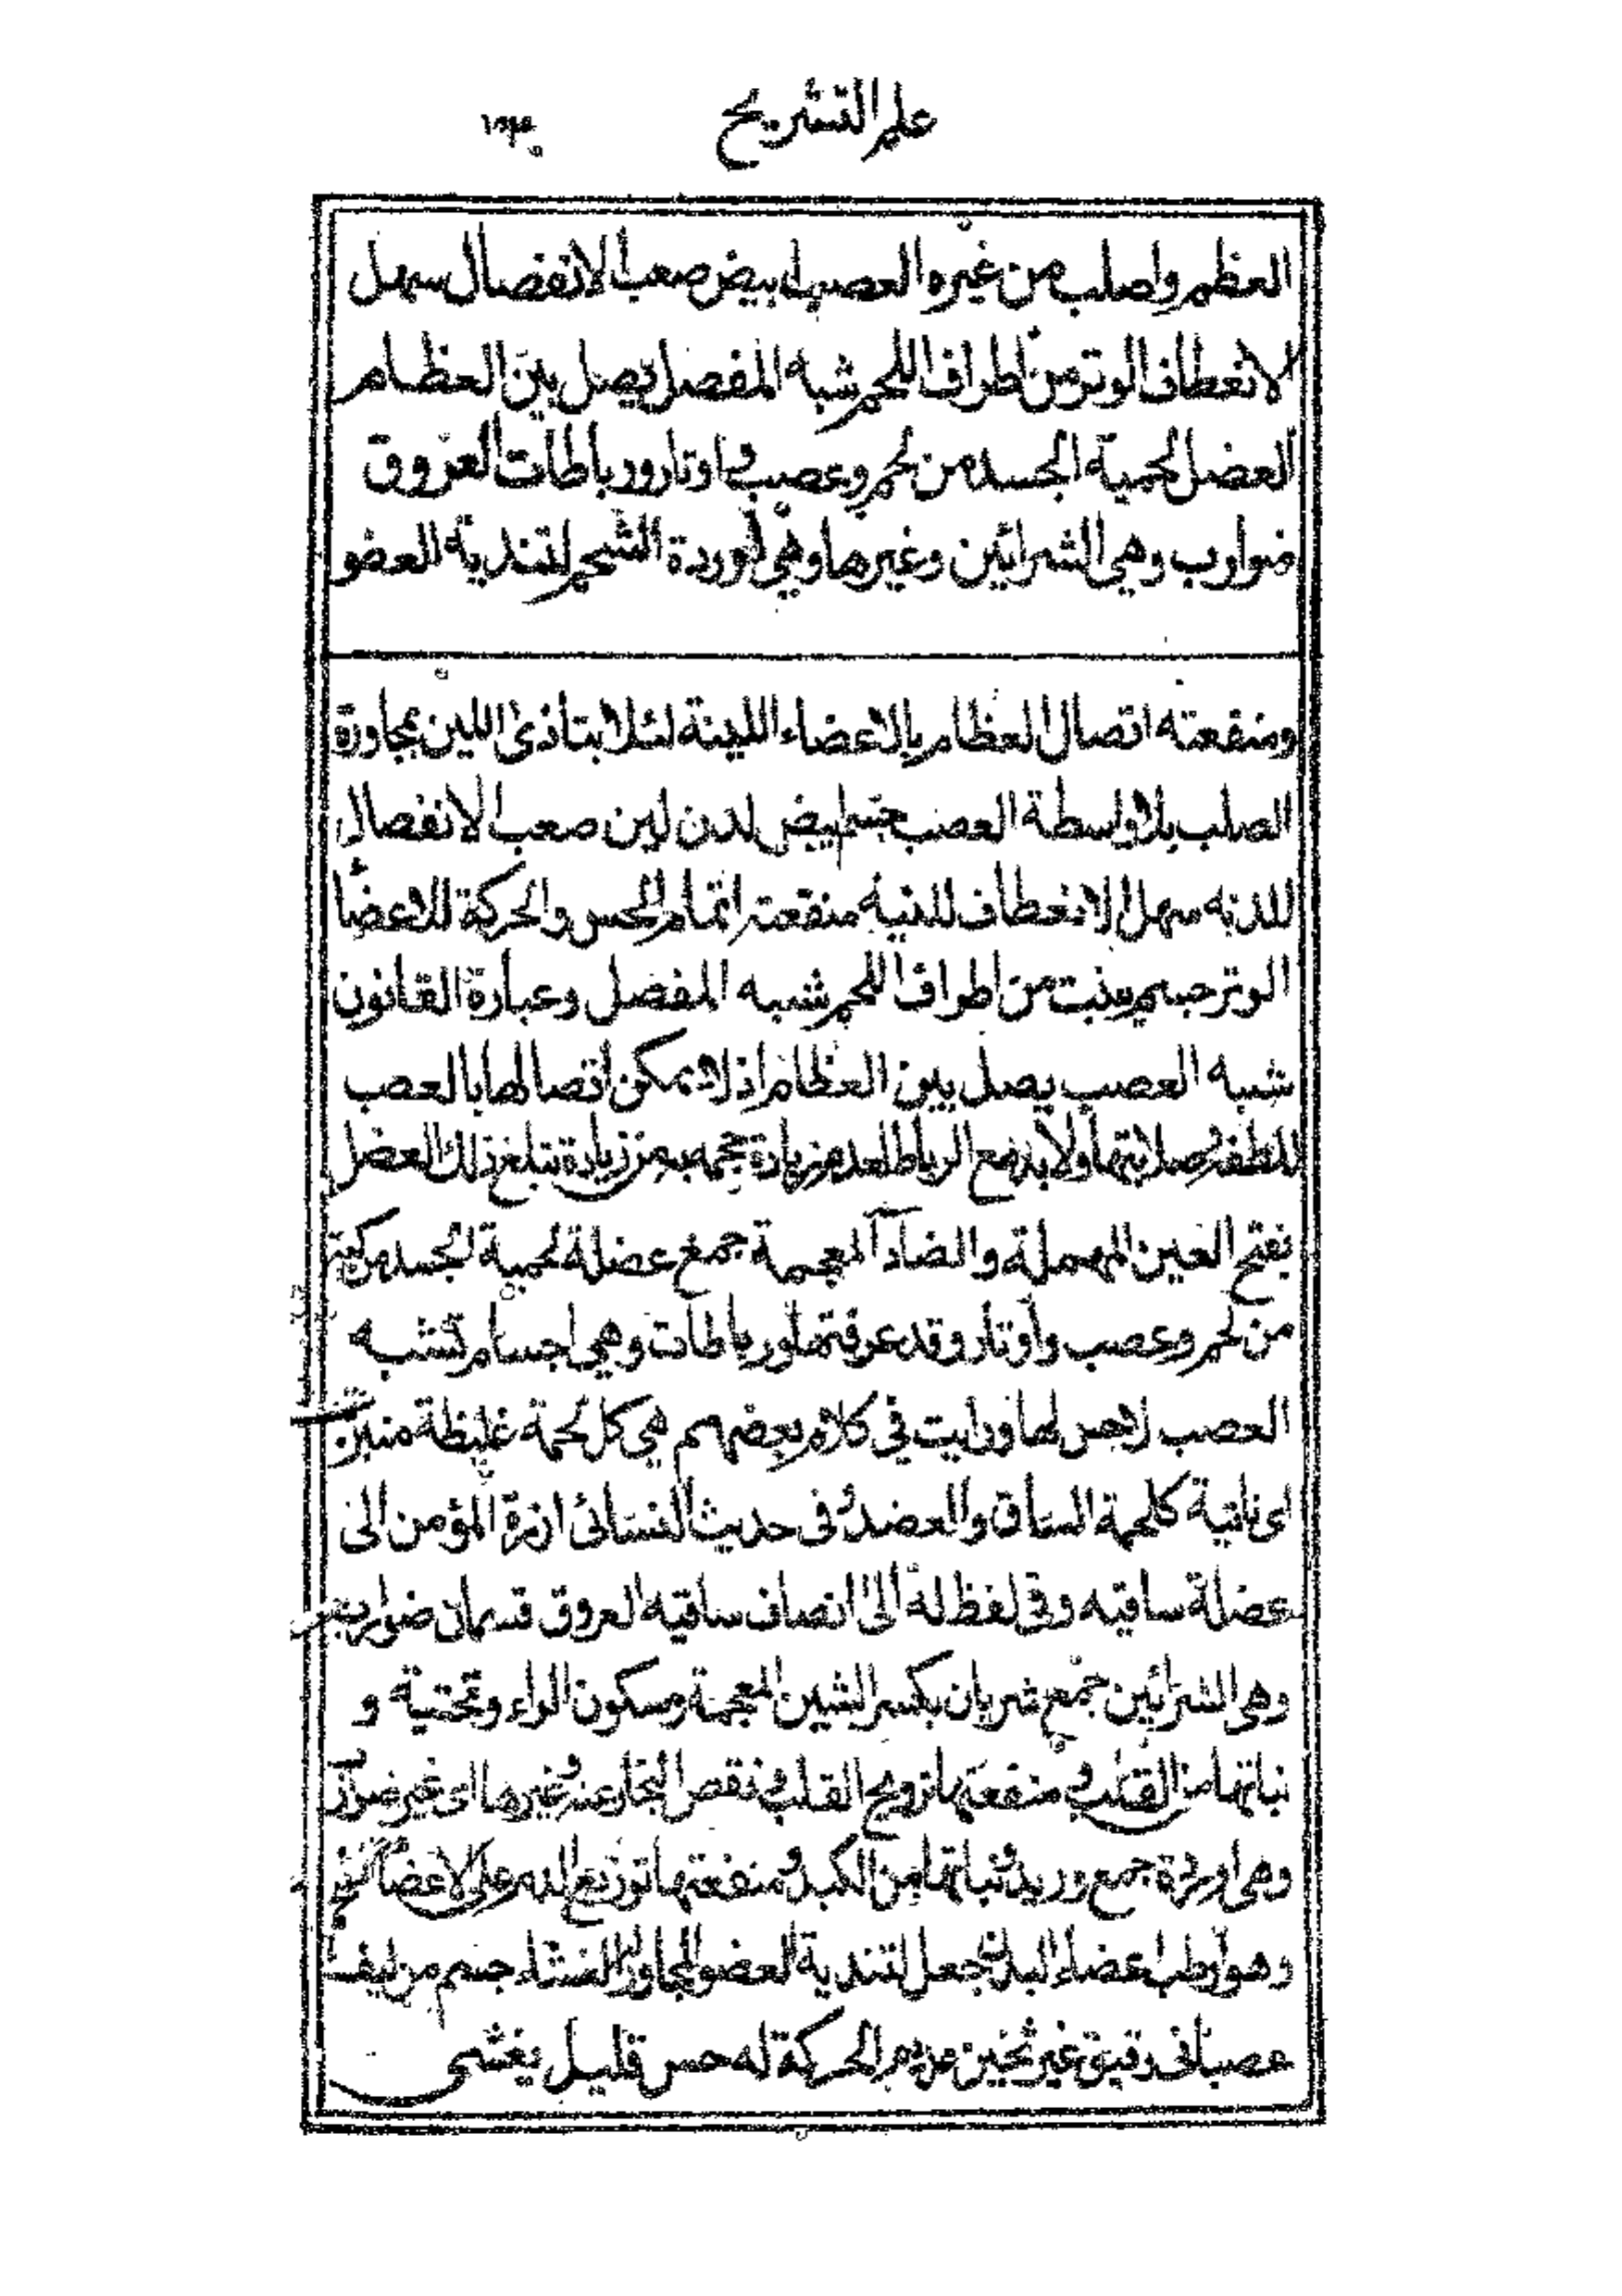 علم التشريح
العظم واصلب من غيره العصب ابيض صعب الانفصال سهل
لانعطاف الوتر من اطراف اللحم شبه المفصل يصل بين العظام
العضل لحمية الجسد من لحم وعصب واوتار ورباطات العروق
ضوارب وهي الشرائين وغيرها وهي اوردة الشحم لتندية العضو
ومنفعته اتصال العظام بالاعضاء اللينة لئلا يتاذى اللين بمجاورة
الصلب بلا واسطة العصب جسم ابيض لدن لين صعب الانفصال
للدنه سهل الانعطاف للنيه منفعته اتمام الحس والحركة للاعضا
الوتر جسم ينبت من اطراف اللحم شبه المفصل وعبارة القانون
شبه العصب يصل بين العظام اذ لا يمكن اتصالها بالعصب
للطفه وصلابتها ولا بد مع الرباط لعدم زيادة حجمه به من زيادة تبلغ ذلك العضل
بفتح العين المهملة والضاد المعجمة جمع عضلة لحمية الجسد مركبة
من لحم وعصب واوتار وقد عرفتها ورباطات وهي اجسام تشبه
العصب لا حس لها ورايت في كلام بعضهم هي كل لحمة غليظة منبرة
اى ناتية كلحمة الساق والعضد وفى حديث النسائى ازرة المؤمن الى
عضلة ساقيه وفي لفظ له الى انصاف ساقيه العروق قسمان ضوارب
وهى الشرائين جمع شريان بكسر الشين المعجمة وسكون الراء وتحتية و
نباتها من القلب ومنفعتها ترويح القلب ونفض البخار عنه وغيرها اى غير ضوارب
وهى اوردة جمع وريد ونباتها من الكبد ومنفعتها توزيع الدم على الاعضا الشحم
وهو ارطب اعضاء البدن جعل لتندية العضو المجاور له الغشاء جسم من ليف
عصبانى رقيق غير ثخين عديم الحركة له حس قليل يغشى